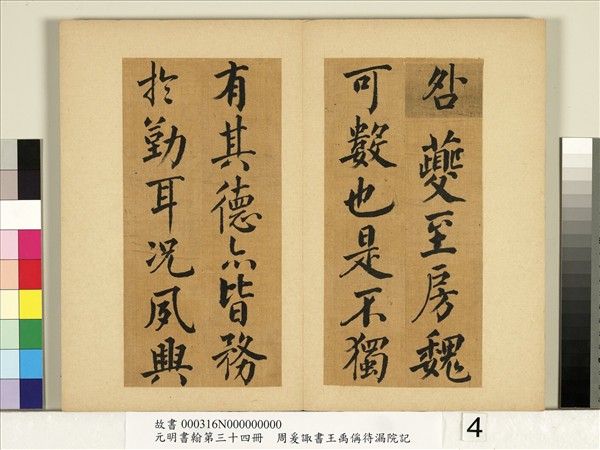 咎夔至房魏
可數也是不獨
有其德亦皆務
於勤耳况夙興
故書 000316N000000000
元明書翰第三十四冊 周爰諏書王禹偁待漏院記
4